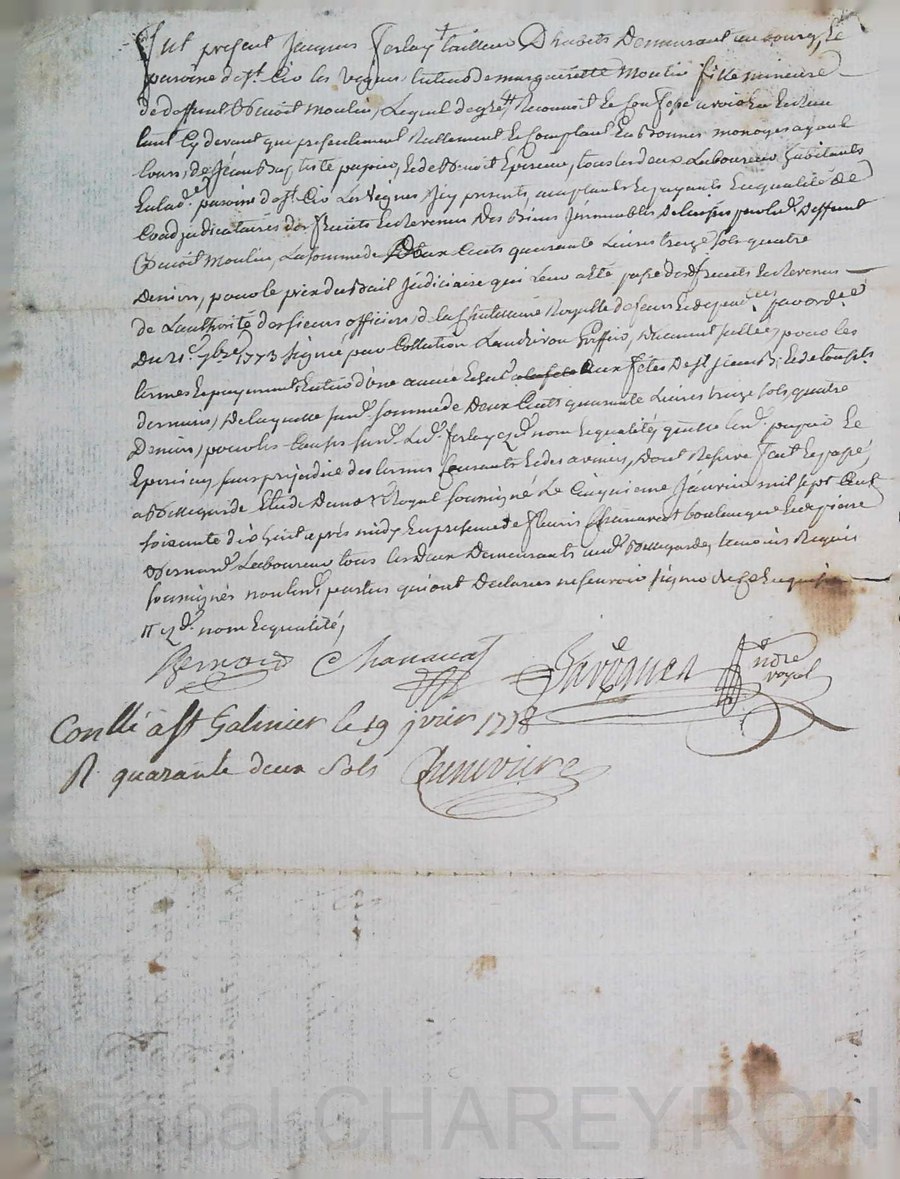 fut présent Jacques ferlay tailleur D'habits Demeurant au bourg, et
paroisse de st. Cir les vignes tuteur de margueritte Moulin fille mineure
de deffunt Benoit Moulin, Lequel de gré Reconnoit et Confesse avoir Eu et Reçu
tant Cy devant que présentement Reellement et Comptant En Bonnes monoyes ayant
Cours, de Jean Baptiste papier, et de Benoit Epercieu, tous les deux Laboureurs habitants
En lad. paroisse de st. Cir Les Vignes, Icy présents, acceptants et payants En qualité de
Coadjudicataires des fruits et Revenus Des Biens Immeubles Delaissés par led. Deffunt
Benoit Moulin, La somme de Deux Cents quarante Livres treize sols quatre
Deniers, pour le prix du Bail Judiciaire qui Leur a été passé desd. fruits et Revenus
de L'authorité des sieurs officiers de la Chatelainie Royalle de
Du 21e. 7bre. 1773 signé par Collation Greffier, Duement scellée, pour les
termes et payements Entiers d'une année Echue aux fêtes De st Jean Be. et de toussts.
derniers, De laquelle susd. somme de Deux Cents quarante Livres treize sols, quatre
Deniers, pour les Causes susd. Led. ferlay esd. nom et qualité, quitte lesd. papier et
Epercieu, sans préjudice des termes Courants et des avenir, Dont Reserve fait et passé,
a Bellegarde Etude Du nore. Royal soussigné Le Cinquieme Janvier mil sept Cent
soixante dix huit après midy En présence de fleuri Chanavat boulanger et de pierre
Bernard Laboureur tous les deux Demeurants aud. Bellegarde, temoins Requis
soussignés non lesd. parties qui ont Declarés ne sçavoir signer de ce Enquis
esd. nom et qualité,
Bernard Chanavat nore royal
Conllé a st Galmier le 19 jvier 1778
R. quarante deux sols Chenevier
Pascal CHAREYRON